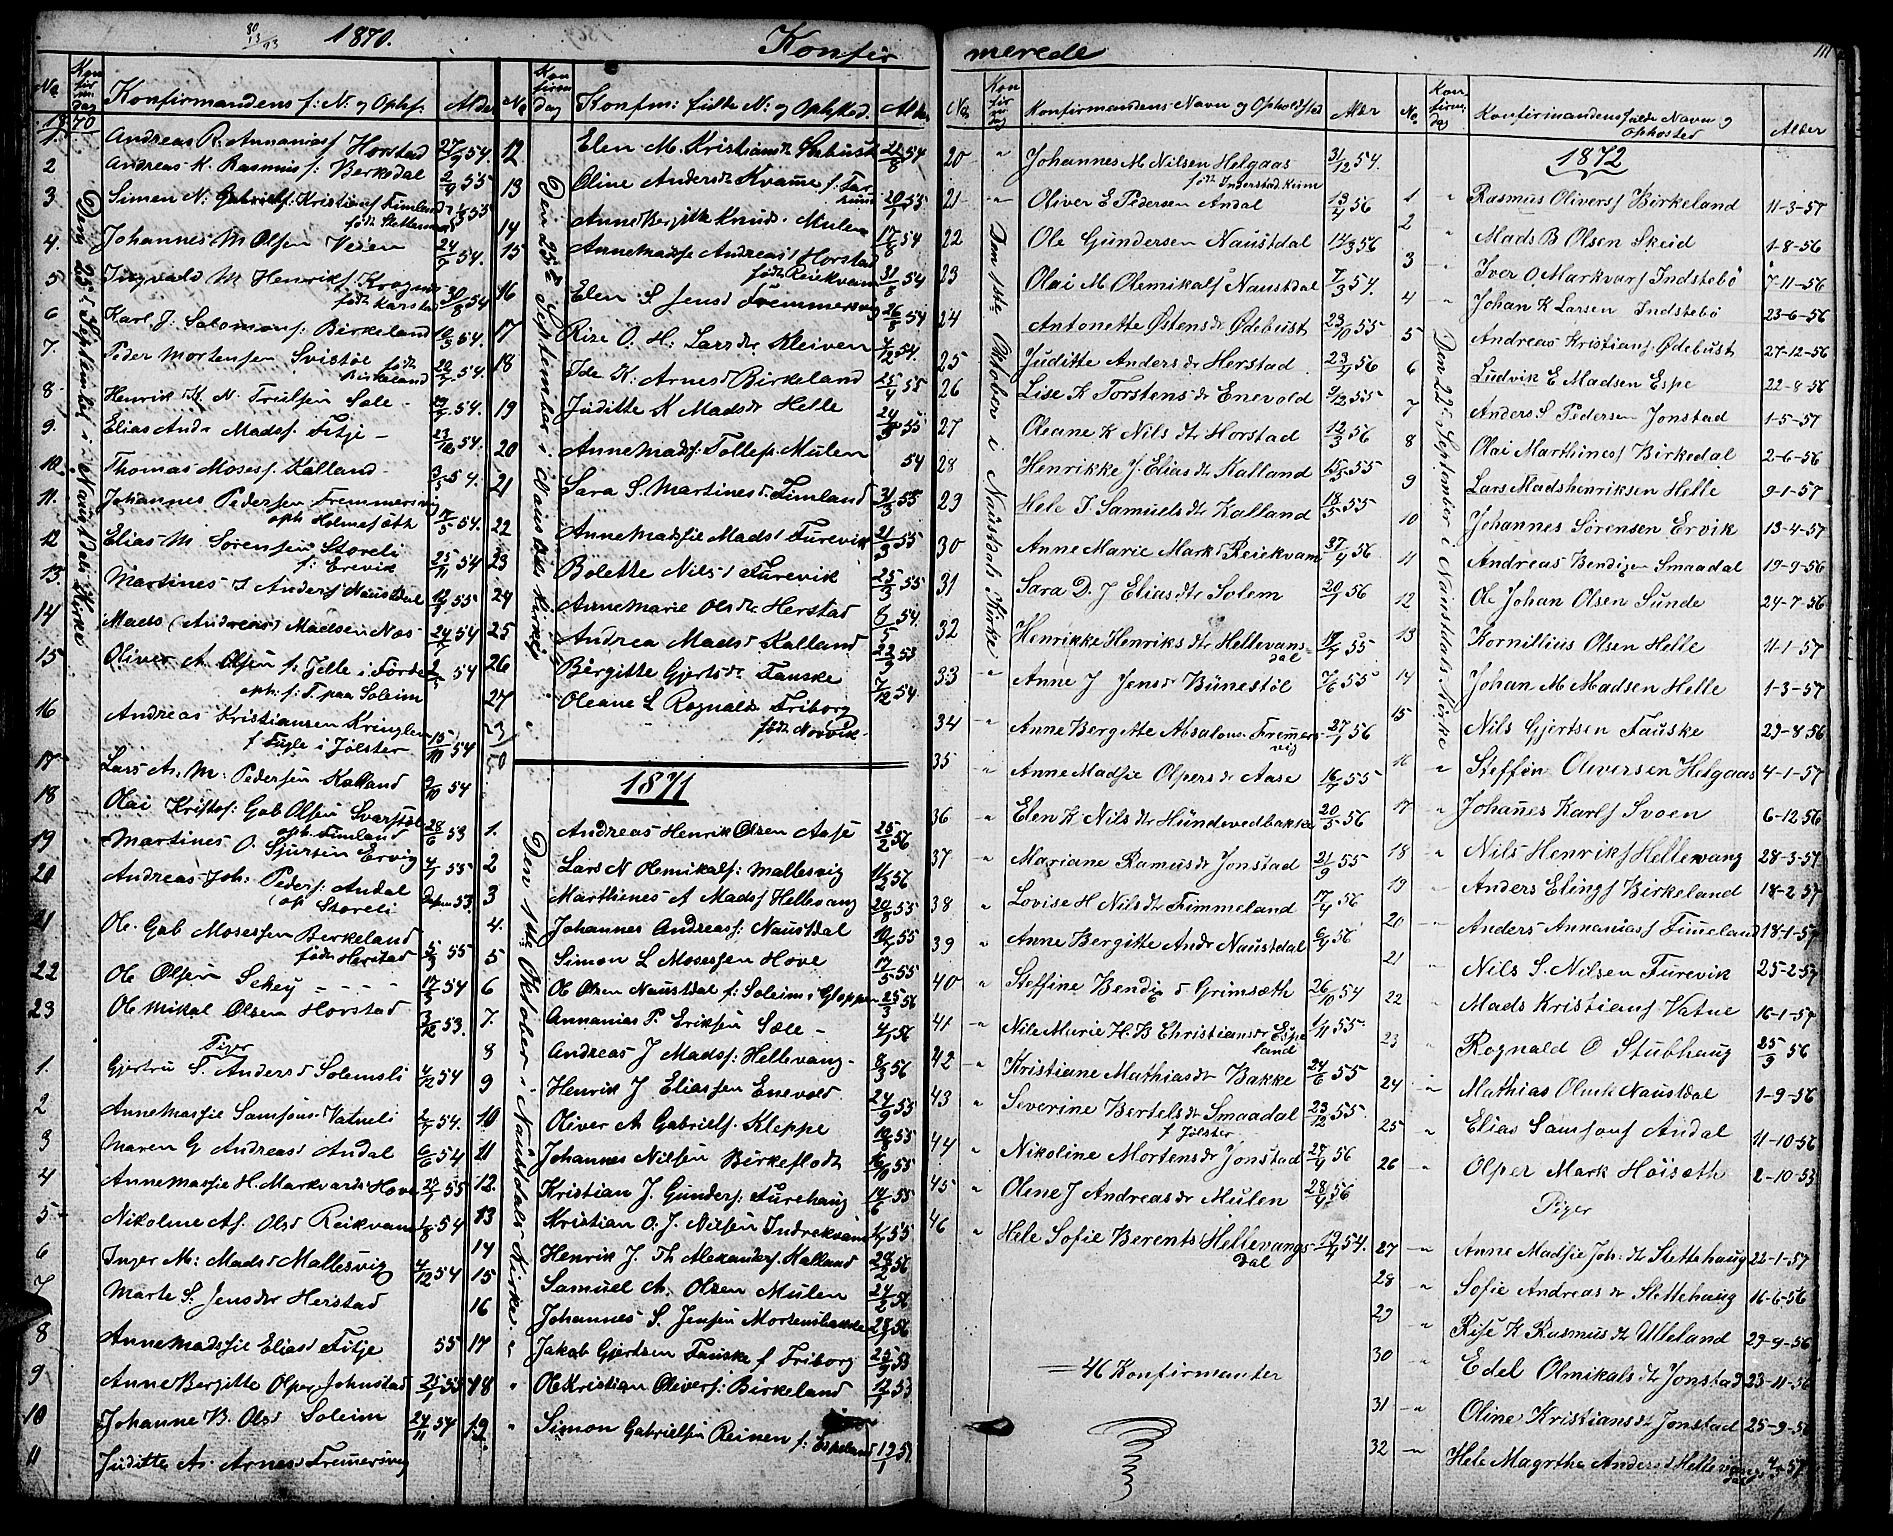 1870.
Konfir
merede
111
No
Konfirmandens f: N: og Ophs.
Alder
1870
Den 25de September i Naustdals Kirke
1. Andreas R. Annaniasf Horstad 27/9 54.
2 Andreas K. Rasmusf: Berkedal 2/4 55
3. Simen N: Gabrielsf. Kristiansf Fimland
født Stettemark
4. Johannes M Olsen Veien 24/7 54.
5 Ingvald M Henriksf. Krogen
født Karstad 30/8 54
6 Karl J: Salomonsf: Birkeland 16/9 54.
7. Peder Mortensen Svistøl født
Birkeland 20/7 54.
8 Henrik K. N. Trulsen Sole - 29/7 54.
9. Elias Andr Madsf. Fitje - 23/10 54.
10. Thomas Mosesf. Kalland 3/5 54.
11. Johannes Pedersen Fremmersvig
oph Holmesæth 17/5 54.
12 Elias M. Sørensen Storeli
f: Erevik 25/11 54
13. Martines S Andersf Naustdal 12/1 55
14 Mads (Andreas) Madsen Næs 24/7 54
15 Oliver A Olsen f: Jelle i Førde 54
oph: f: T. paa Soleim
16 Andreas Kristiansen Kringlen
f Fugle i Jølster 15/10 54
17 Lars A. M. Pedersen Kalland 9/10 54
18 Olai Kristof: Gab Olsen Svarstøl
oph. Fimland 28/6 53
19 Martines O. Sjursen Ervig 4/1 55
20 Andreas Joh: Pedersf: Andal
oph Storeli
21 Ole Gab Mosessen Berkeland
født Herstad 5/3 55
22 Ole Olsen Sekey 17/3 54
23 Ole Mikal Olsen Horstad 3/12 53.
Piger
1. Gjertru S. Andersd Solemsli 4/12 54
2 Annemarsie Samsonsd Vatneli 2/7 54.
3 Maren G Andreasd Andal 6/6 54
4 Annemarsie H. Markvardsd Hove 27/1 55
5 Nikoline As. Olsd Reikvam 1/8 54
6 Inger M: Madsd Mallesvig 4/12 54
7 Marte S. Jensdtr Herstad
8 Annemadsfie Eliasd Fitje 55
9 Anne Bergitte Olper Johnstad 25/1 55
10 Johanne B. Olsd Soleim 24/11 54
11 Juditte A. Arnesd Fremersvig
No
Konfm: fulde N: og Ophsted.
Alder
Den 25de September i Naustdals Kirke
12 Elen M. Kristiansdtr Ødebust 21/8 54
13 Oline Andersdtr Kvame f. 20/1 55
14 Anne Bergitte Knudsd. Mulen 17/8 54
15 Annemadsfe Andreasd Horstad
født Reikvam 31/8 54
16 Elen S Jensd Fremmersvig 26/8 54
17 Rise O. H: Larsdtr Kleiven 4/12 54.
18 Ide K: Arnesd Birkeland 25/4 55
19 Juditte K Madsdtr Helle 24/3 55
20 Annemadsf: Tollefs Mulen 54
21 Sara S. Martinesd. Fimland 31/3 55
22 Annemadsfie Madsd Furevik 21/3 55
23 Bolette Nilsd Furevik 25/3 55
24 Annemarie Olsdtr Herstad 6/5 54.
25 Andrea Madsd Kalland 22/9 53
26 Bergitte Gjertsdr Fauske 7/12 54
27 Oleane L Rognalds Friborg
født Norvik
23
50
1871
Den 1ste Oktober i Naustdals Kirke
1. Andreas Henrik Olsen Aase 25/2 56
2 Lars N Olemikalsf: Mallesvig 11/2 56
3 Marthines A Madsf Hellevang 20/8 55
4. Johannes Andreasf: Naustdal 10/7 55
5 Simon L Mosessen Hove 17/5 55
6 Ole Olsen Naustdal f: Soleim i Gloppen 25/3 56
7. Annanias P. Eriksen Sæle - 4/1 56
8 Andreas J Madsf: Hellevang - 8/3 56
9 Henrik J Eliassen Enevold 24/9 55
10 Oliver A Gabrielsf. Kleppe 10/2 55
11 Johannes Nilsen Birkeflodt 16/10 55
12. Kristian J. Gundersf: Furehaug 14/6 55
13 Kristian O. J. Nilsen Indrekvam 1/7 55
14 Henrik J. Th Alexandersf. Kalland 28/2 56
15 Samuel A. Olsen Mulen 24/2 56
16 Johannes S. Jensen Mortensbakke 28/1 56
17 Jakob Gjertsen Fauske f Friborg 25/9 53
18 Ole Kristian Oliversf: Birkeland 12/1 53
19. Simon Gabrielsen Reinen f: Espeland 19/1 5
No.
Konfirmandens Navn og Opholdssted
Alder
Den 1ste Oktober i Naustdals Kirke
20 Johannes M Nilsen Helgaas 31/12 54.
født Inderstad Reim
21 Oliver E Pedersen Andal 13/4 56
22 Ole Gundersen Naustdal 14/3 56
23 Olai M Olemikalsf Naustdal 7/3 54.
24 Antonette Østensdr Ødebust 23/10 55.
25 Juditte Andersdr Herstad 23/4 56
26 Lise K Torstensdr Enevold 9/12 55
27 Oleane K Nilsdtr Horstad 12/3 56
28 Henrikke J. Eliasdtr Kalland 15/5 55
29 Hele I Samuelsdtr Kalland 18/5 55
30 Anne Marie Marksd Reiekvam 27/4 56
31 Sara D. J Eliasdtr Solem 20/1 56
32 Henrikke Henriksdtr Hellevans=
dal 17/7 55
33 Anne J Jensdr Bünestøl 7/6 55
34 Anne Bergitte Absalons Fremers-
vig 27/1 56
35 Anne Madsie Olpersdr Aase 16/7 55
36 Elen K Nilsdtr Hündevedbakke 20/5 56
37 Mariane Ramusdr Jonstad 21/9 55
38 Lovise H Nilsdtr Fimmeland 17/4 56
39 Anne Bergitte Andr Naustdal 6/4 56
40 Steffine Bendigsd Grimsæth 26/10 54
41 Nile Marie H. B Christiansdr Espe
land 1/11 55.
42 Kristiane Mathiasdtr Bakke 24/6 55
43 Severine Bertelsdtr Smaadal 23/12 55.
f Jølster
44 Nikoline Mortensdr Jonstad 27/4 56
45 Olene J Andreasdr Mulen 28/4 56
46 Hele Sofie Berents Hellevangs-
dal 19/4 54.
= 46 Konfirmanter
No.
Konfirmandens fulde Navn og
Ophosted
Alder
1872
Den 22. September i Naustdals Kirke
1 Rasmus Oliversf Birkeland 11-3-57
2 Mads B Olsen Skeid 1-8-56
3 Iver O Markvarsf Indstebö 7-11-56
4 Johan K Larsen Indstebö 23-6-56
5 Andreas Kristiansf Ødebust 27-12-56
6 Ludvik E Madsen Espe 22-8-56
7 Anders S Pedersen Jonstad 1-5-57
8 Olai Marthinesf Birkedal 2-6-56
9 Lars Madshenriksen Helle 9-1-57
10 Johannes Sørensen Ervik 13-4-57
11 Andreas Bendigen Smaadal 19-9-56
12 Ole Johan Olsen Sunde 24-7-56
13 Kornillius Olsen Helle 11-1-57
14 Johan M Madsen Helle 1-3-57
15 Nils Gjertsen Fauske 29-8-56
16 Steffön Oliversen Helgaas 4-1-57
17 Johanes Karlsf Svoen 6-12-56
18 Nils Henriksf Hellevang 28-3-57
19 Anders Elingsf Birkeland 18-2-57
20 Anders Annaniasf Fimeland 18-1-57
21 Nils S. Nilsen Furevik 25-2-57
22 Mads Kristiansf Vatne 16-1-57
23 Rognald O Stubhaug 25/9 56
24 Mathias Olsen Naustdal 1-9-56
25 Elias Samsonsf Andal 11-10-56
26 Olper Mark Höisæth 2-10-53
Piger
27 Anne Madsie Joh:dtr Slettehaug 22-1-57
28 Sofie Andreasdtr Slettehaug 16-6-56
29 Rise K Rasmusdtr Ulleland 29-9-56
30 Edel Olmikalsdtr Jonstad 23-11-56
31 Oline Kristiansdtr Jonstad 25-9-56
32 Hele Magrthe Andersd Hellevangs
dal 4/3 57